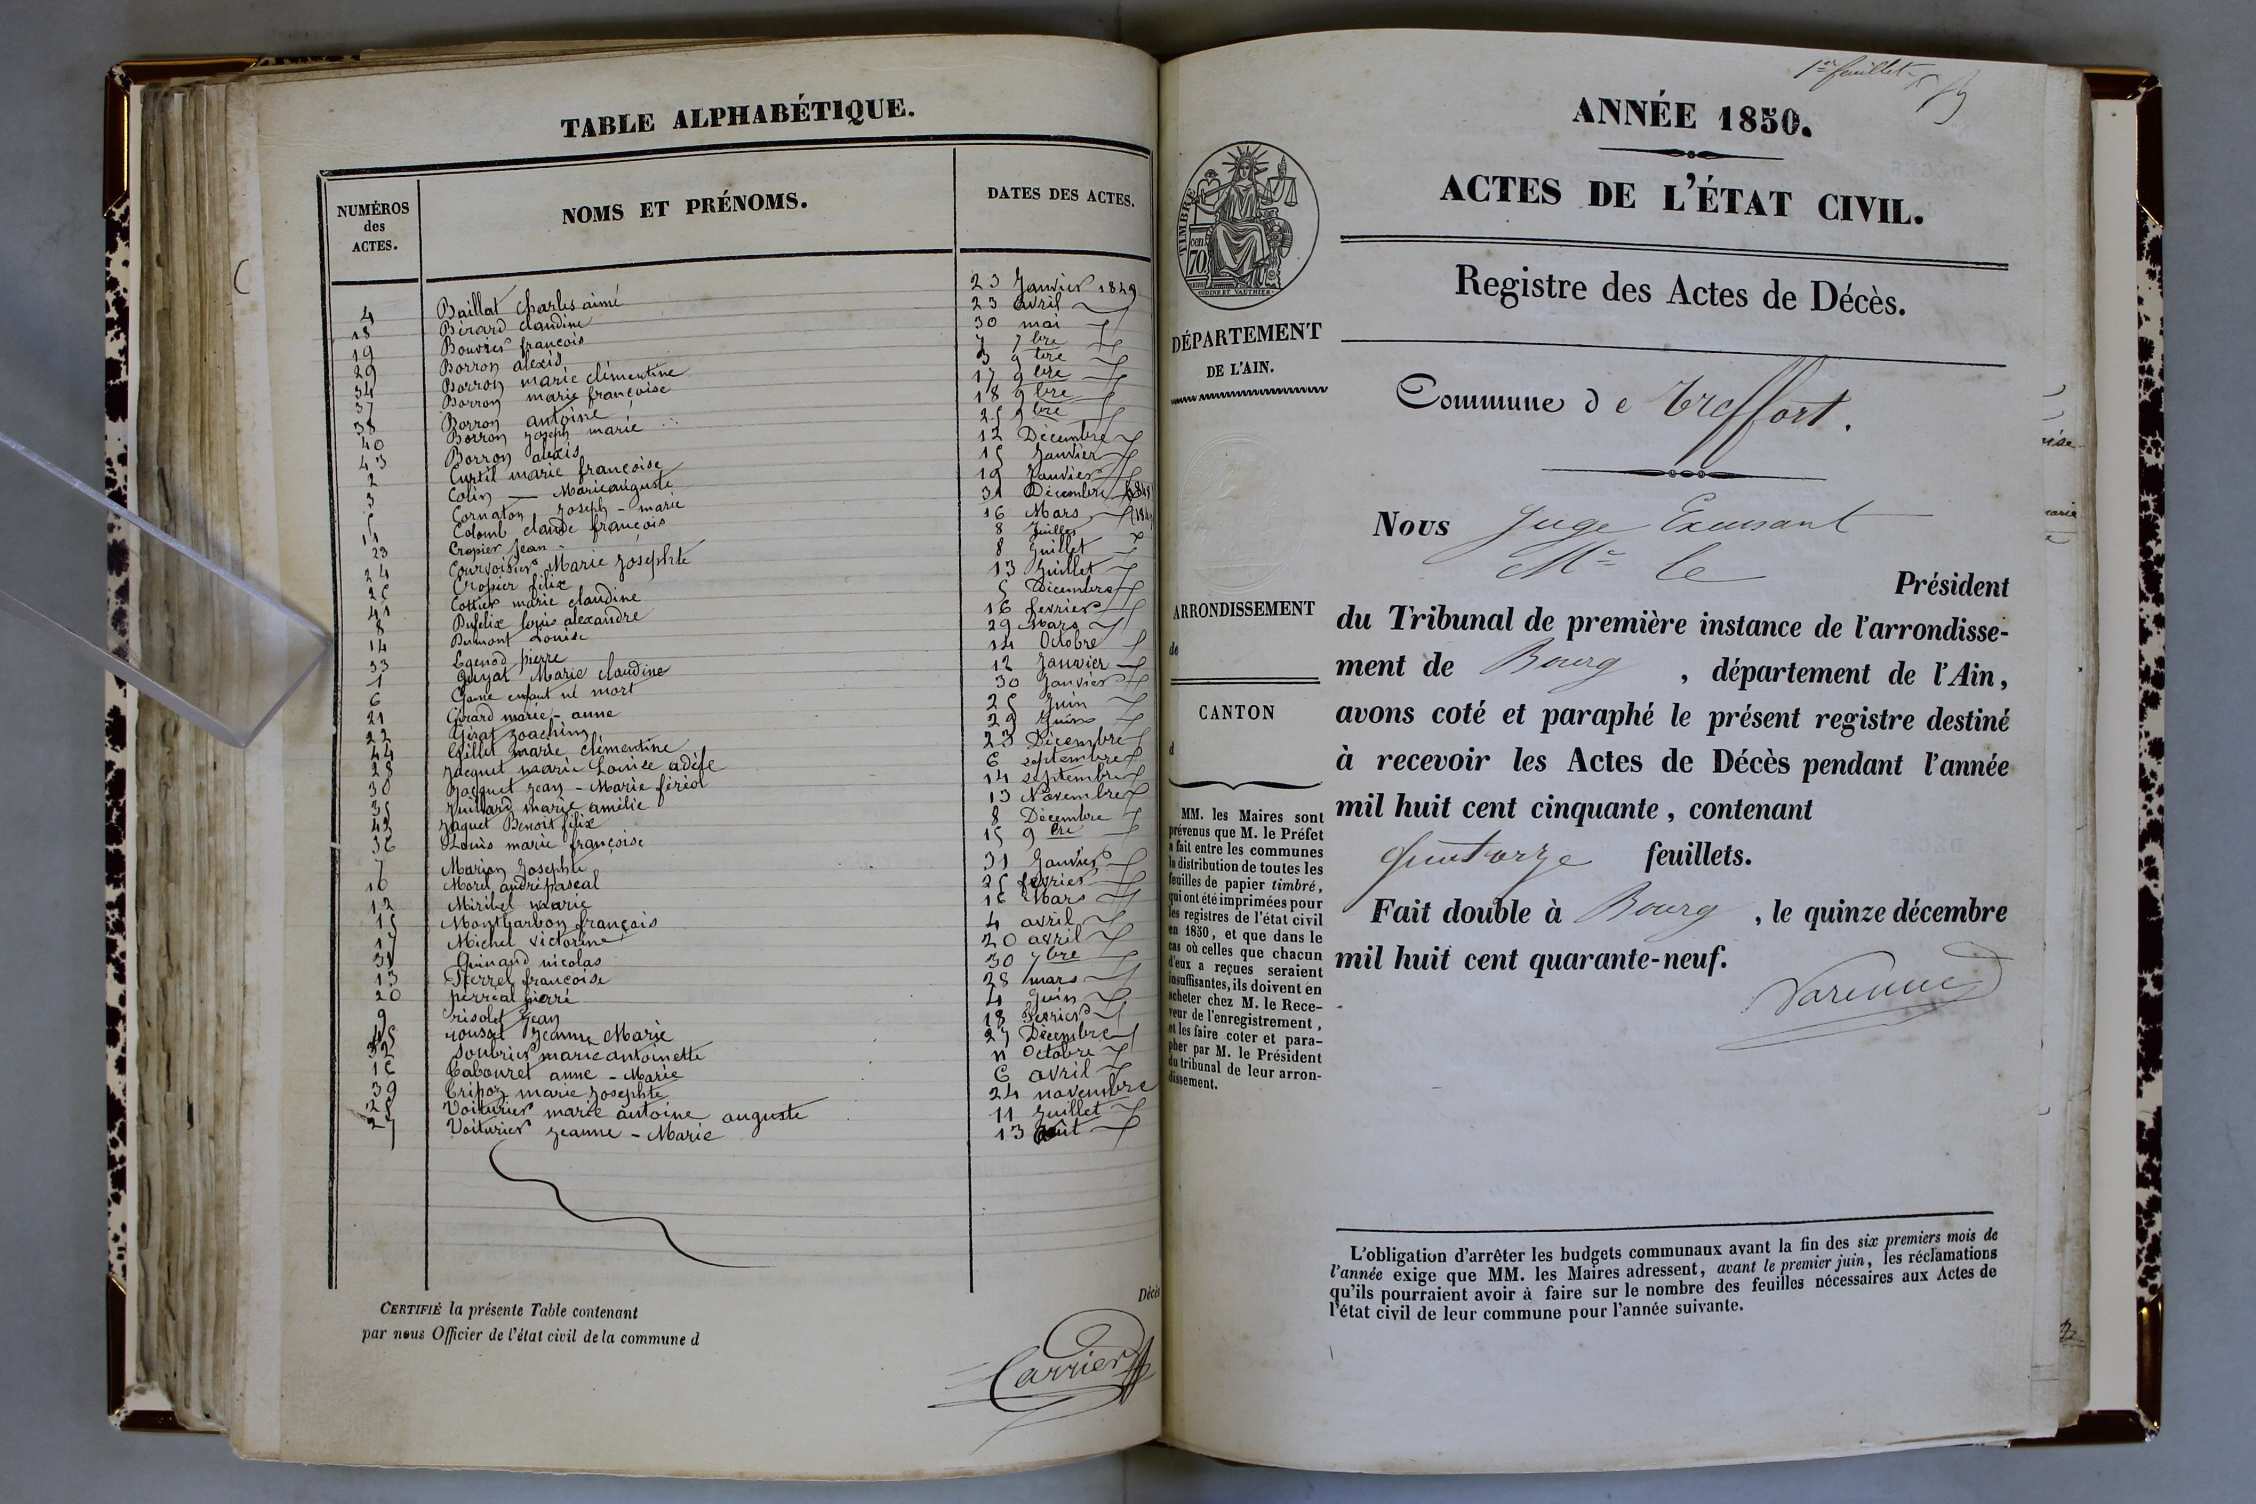 TABLE ALPHABÉTIQUE.
NUMÉROS
des
ACTES.
NOMS ET PRÉNOMS.
DATES DES ACTES.
4 Baillat Charles aimé 23 Janvier 1849
18 Bérard claudine 23 avril
19 Bouvier françois 30 mai
29 Borron alexis 7 7bre
34 Borron marie clémentine 3 9bre
37 Borron marie françoise 17 9bre
38 Borron antoine 18 9bre
40 Borron Joseph marie 25 9bre
43 Borron alexis 12 Décembre
2 Curtil marie françoise 15 Janvier
3 Colin — Marie auguste 19 Janvier
5 Cornaton Joseph - marie 31 Décembre
11 Colomb claude françois 16 Mars
23 Cropier Jean 8 Juillet
24 Courvoisier Marie Josephte 8 Juillet
26 Cropier félix 13 Juillet
41 Cottier marie claudine 5 Décembre
8 Dufelix louis alexandre 16 fevrier
14 Dumont Louise 29 Mars
33 Egenod pierre 14 Octobre
1 Guyat Marie claudine 12 Janvier
6 enfant né mort 30 Janvier
21 Girard marie - anne 25 Juin
22 Joachim 29 Juin
44 Gillet marie clémentine 23 Décembre
28 Jacquet marie Louise adèle 6 septembre
30 Jacquet Jean - Marie féréol 14 septembre
35 Juillard marie amélie 13 Novembre
42 Jaquet Benoit félix 8 Décembre
36 Louis marie françoise 15 9bre
7 Marion Josephte 31 Janvier
10 Morel andré pascal 25 fevrier
12 Miribel marie 16 Mars
15 Montbarbon françois 4 avril
17 Michel victorine 20 avril
31 Guinand nicolas 30 7bre
13 françoise 28 mars
20 perréal pierre 4 Juin
9 risolet Jean 18 fevrier
45 rousset Jeanne Marie 27 Décembre
32 Soubrier marie antoinette 11 Octobre
16 Tabouret anne - Marie 6 avril
39 Tripoz marie Josephte 24 novembre
25 Voiturier marie antoine auguste 11 Juillet
27 Voiturier Jeanne - Marie 13 août
CERTIFIÉ la présente Table contenant
Décès
par nous Officier de l'état civil de la commune d
Carrier
1er feuillet
ANNÉE 1850.
ACTES DE L'ÉTAT CIVIL.
Registre des Actes de Décès.
TIMBRE
cent.
70
DÉPARTEMENT
DE L'AIN.
Commune de Treffort.
Nous Juge Exerçant
Mr le
Président
du Tribunal de première instance de l'arrondisse-
ment de Bourg, département de l'Ain,
avons coté et paraphé le présent registre destiné
à recevoir les Actes de Décès pendant l'année
mil huit cent cinquante, contenant
quatorze feuillets.
Fait double à Bourg, le quinze décembre
mil huit cent quarante-neuf.
Varenne
ARRONDISSEMENT
de
CANTON
d
MM. les Maires sont
prévenus que M. le Préfet
a fait entre les communes
la distribution de toutes les
feuilles de papier timbré,
qui ont été imprimées pour
les registres de l'état civil
en 1850, et que dans le
cas où celles que chacun
d'eux a reçues seraient
insuffisantes, ils doivent en
acheter chez M. le Rece-
veur de l'enregistrement,
et les faire coter et para-
pher par M. le Président
du tribunal de leur arron-
dissement.
L'obligation d'arrêter les budgets communaux avant la fin des six premiers mois de
l'année exige que MM. les Maires adressent, avant le premier juin, les réclamations
qu'ils pourraient avoir à faire sur le nombre des feuilles nécessaires aux Actes de
l'état civil de leur commune pour l'année suivante.